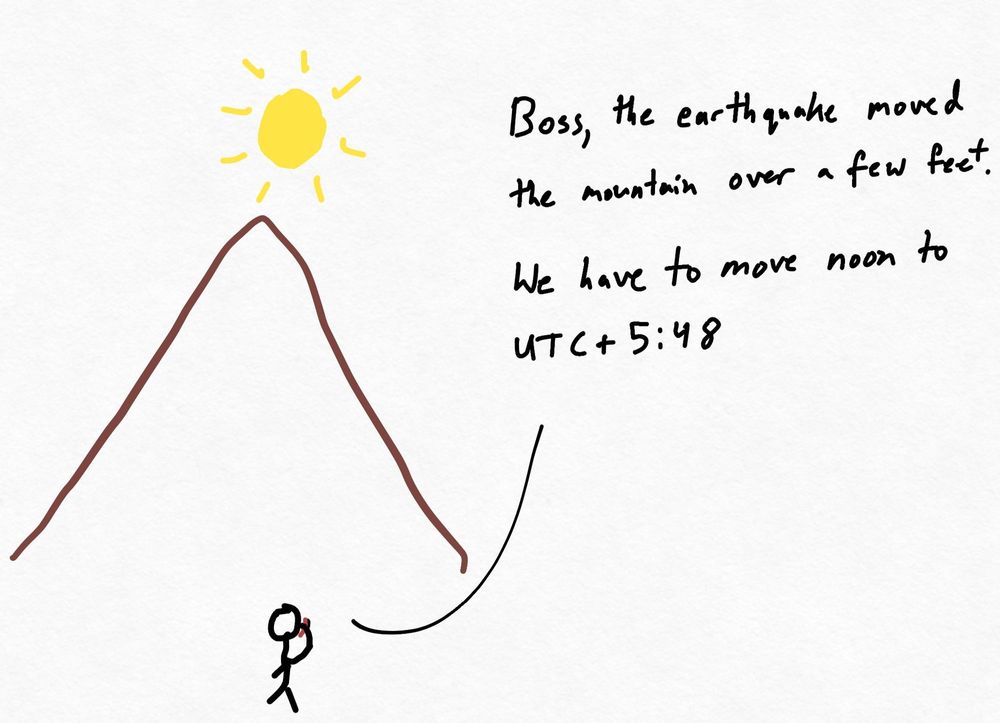 Boss, the earthquake moved
the mountain over a few feet.
We have to move noon to
UTC+5:48